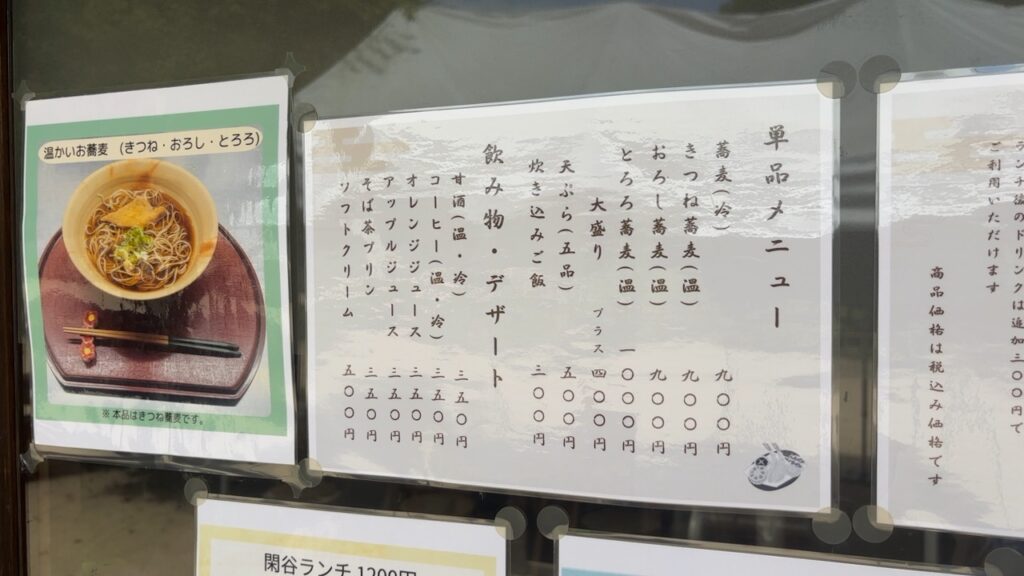 温かいお蕎麦 (きつね・おろし・とろろ)
※ 本品はきつね蕎麦です。
単品メニュー
蕎麦(冷) 九〇〇円
きつね蕎麦(温) 九〇〇円
おろし蕎麦(温) 九〇〇円
とろろ蕎麦(温) 一〇〇〇円
大盛り プラス 四〇〇円
天ぷら(五品) 五〇〇円
炊き込みご飯 三〇〇円
飲み物・デザート
甘酒(温・冷) 三五〇円
コーヒー(温・冷) 三五〇円
オレンジジュース 三五〇円
アップルジュース 三五〇円
そば茶プリン 三五〇円
ソフトクリーム 五〇〇円
ドリンクは追加三〇〇円で
ご利用いただけます
商品価格は税込み価格です
閑谷ランチ 1200円